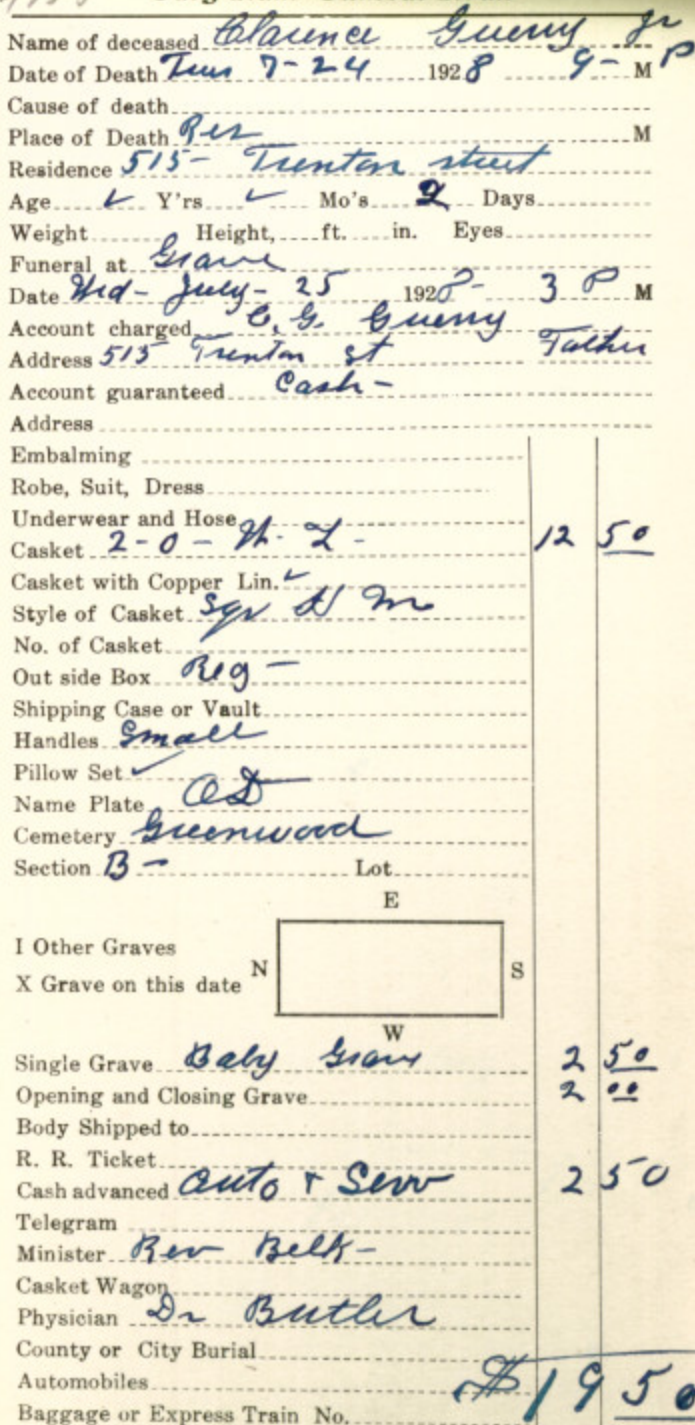 Name of deceased Clarence Guerry Jr
Date of Death Tues 7-24 1928 9- M P
Cause of death
Place of Death Res M
Residence 515- Trenton street
Age ✓ Y'rs ✓ Mo's 2 Days
Weight Height, ft. in. Eyes
Funeral at Grave
Date Wed- July- 25 1928- 3 P M
Account charged C. G. Guerry
Address 515 Trenton st Father
Account guaranteed Cash-
Address
Embalming
Robe, Suit, Dress
Underwear and Hose
Casket 2-0- 12 50
Casket with Copper Lin. ✓
Style of Casket Sqr
No. of Casket
Out side Box Reg-
Shipping Case or Vault
Handles Small
Pillow Set ✓
Name Plate OD
Cemetery Greenwood
Section B- Lot
E
I Other Graves
X Grave on this date N S
W
Single Grave Baby Grave 2 50
Opening and Closing Grave 2 00
Body Shipped to
R. R. Ticket
Cash advanced auto + Serv 2 50
Telegram
Minister Rev Belk-
Casket Wagon
Physician Dr Butler
County or City Burial
Automobiles $19 50
Baggage or Express Train No.